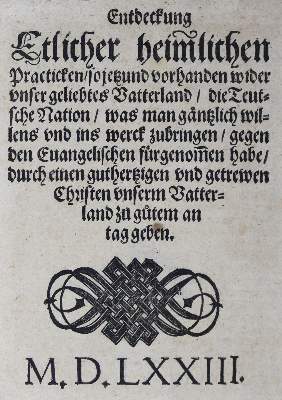 Entdeckung
Etlicher heimlichen
Practicken / so jetzund vorhanden wider
vnser geliebtes Vatterland / die Teut-
sche Nation / was man gäntzlich wil-
lens vnd ins werck zubringen / gegen
den Euangelischen fürgenom̃en habe /
durch einen guthertzigen vnd getrewen
Christen vnserm Vatter-
land zů gůtem an
tag geben.
M. D. LXXIII.